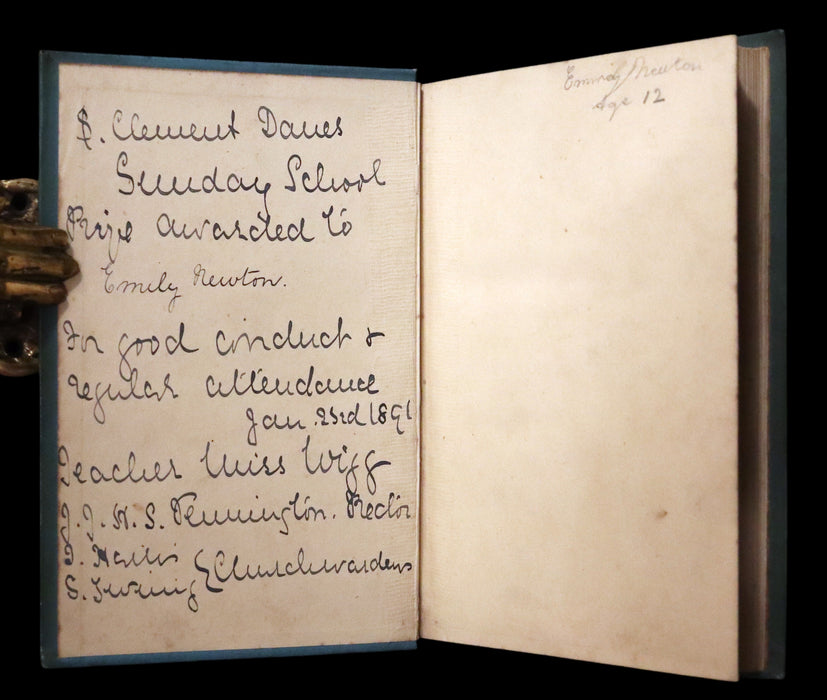 S. Clement Danes
Sunday School
Prize awarded to
Emily Newton.
For good conduct &
regular attendance
Jan. 23rd 1891
Teacher Miss Wigg
J. J. H. S. Pennington. Rector
Churchwardens
S.
Emily Newton
Age 12